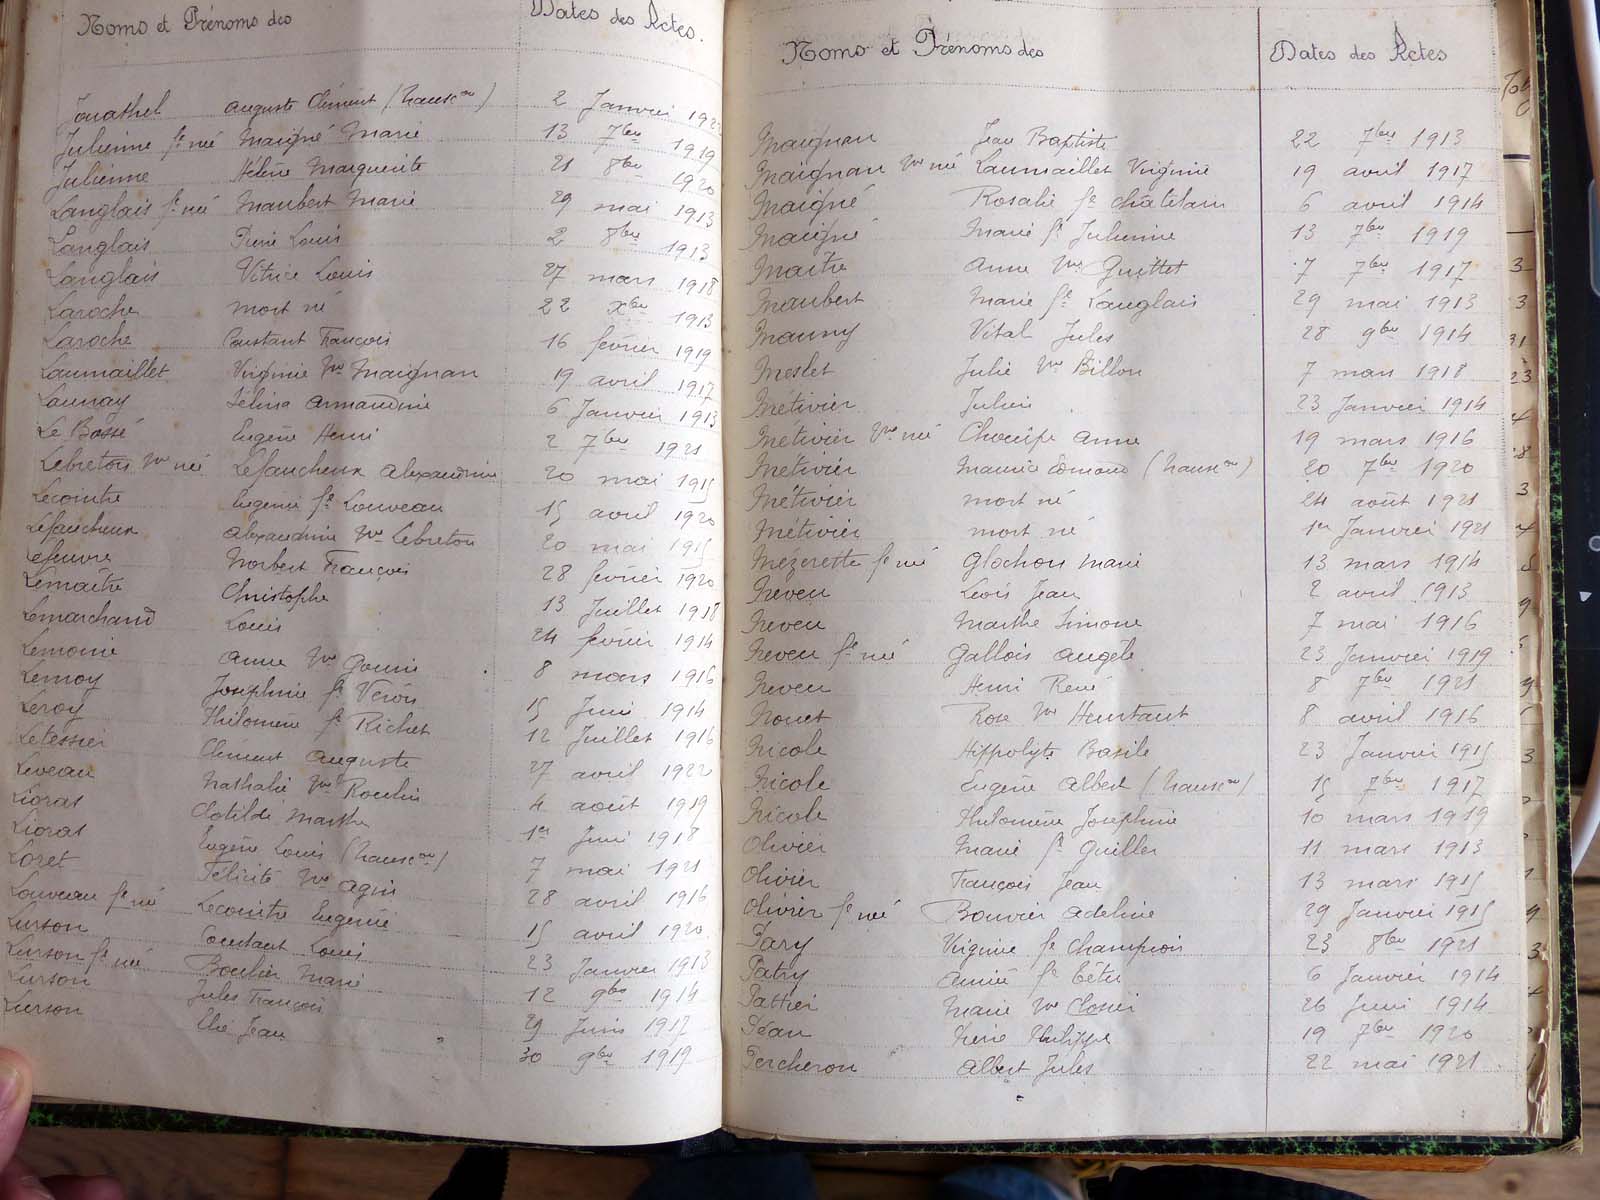 Noms et Prénoms des Dates des Actes.
Jouathel Auguste Clément (transc on) 2 Janvier 1922
Julienne fe née Maigné Marie 13 7bre 1919
Julienne Hélène Marguerite 21 8bre 1920
Langlais fe née Maubert Marie 29 mai 1913
Langlais Pierre Louis 2 8bre 1913
Langlais Louis 27 mars 1918
Laroche mort né 22 Xbre 1913
Laroche Constant François 16 février 1919
Laumaillet Virginie Vve Maignan 19 avril 1917
Launay Armandine 6 Janvier 1913
Le Bossé Eugène Henri 2 7bre 1921
Lebreton Vve née Lefaucheux Alexandrine 20 mai 1915
Lecointre Eugénie fe Louveau 15 avril 1920
Lefaucheux Alexandrine Vve Lebreton 20 mai 1915
Lefeuvre Norbert François 28 février 1920
Lemaître Christophe 13 Juillet 1918
Lemarchand Louis 24 février 1914
Lemoine Anne Vve 8 mars 1916
Lemoy Joséphine fe 15 Juin 1914
Leroy Philomène fe Richet 12 Juillet 1916
Letessier Clément Auguste 27 avril 1922
Leveau Nathalie Vve Roulin 4 août 1919
Lioras Clotilde Marthe 1er Juin 1918
Lioras Eugène Louis (transc on) 7 mai 1921
Loret Félicité Vve Agin 28 avril 1916
Louveau fe née Lecointre Eugénie 15 avril 1920
Lurson Constant Louis 23 Janvier 1913
Lurson fe née Boulier Marie 12 9bre 1914
Lurson Jules François 29 Juin 1917
Lurson Elie Jean 30 9bre 1919
Noms et Prénoms des Dates des Actes
Maignan Jean Baptiste 22 7bre 1913
Maignan Vve née Laumaillet Virginie 19 avril 1917
Maigné Rosalie fe Châtelain 6 avril 1914
Maigné Marie fe Julienne 13 7bre 1919
Maitre Anne Vve Guittet 7 7bre 1917
Maubert Marie fe Langlais 29 mai 1913
Mauny Vital Jules 28 9bre 1914
Meslet Julie Vve Billon 7 mars 1918
Métivier Julien 23 Janvier 1914
Métivier Vve née Anne 19 mars 1916
Métivier Maurice Edmond (transc on) 20 7bre 1920
Métivier mort né 24 août 1921
Métivier mort né 1er Janvier 1921
Mézerette fe née Glochon Marie 13 mars 1914
Neveu Léon Jean 2 avril 1913
Neveu Marthe Simone 7 mai 1916
Neveu fe née Gallois Angèle 23 Janvier 1919
Neveu Henri René 8 7bre 1921
Nouet Rose Vve Heurtaut 8 avril 1916
Nicole Hippolyte Basile 23 Janvier 1915
Nicole Eugène Albert (transc on) 15 7bre 1917
Nicole Philomène Joséphine 10 mars 1919
Olivier Marie fe Guiller 11 mars 1913
Olivier François Jean 13 mars 1915
Olivier fe née Bouvier Adeline 29 Janvier 1915
Pary Virginie fe Champion 23 8bre 1921
Patry Aimée fe Bétu 6 Janvier 1914
Pattier Marie Vve Closier 26 Juin 1914
Péan Pierre Philippe 19 7bre 1920
Percheron Albert Jules 22 mai 1921